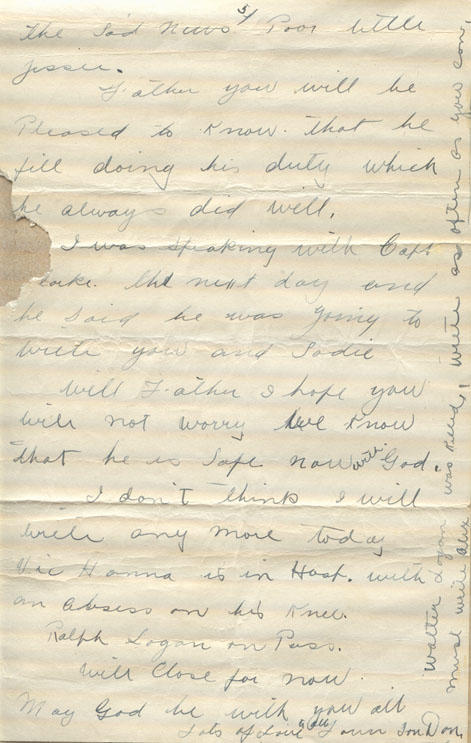 5/
The Sad News Poor little
Jessie.
Father you will be
Pleased to Know. that he
fill doing his duty which
he always did well.
I was speaking with Capt
the next day and
he said he was going to
write you and Sadie
Well Father I hope you
will not worry We Know
that he is Safe now with God.
I don't think I will
write any more today
Vic Hanna is in Hosp. with
an absess on his Knee.
Ralph Logan on Pass.
Will Close for now
May God be with you all
Lots of Love Your Son Don.
Walter Logan was Killed, write as often as you can,
must write